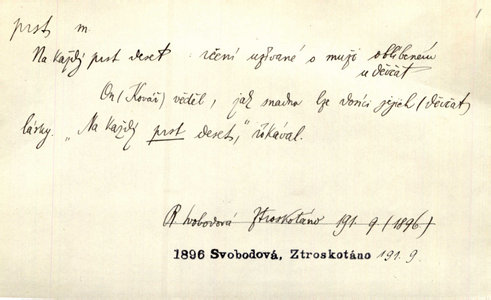 prst m.
1
Na každý prst deset : rčení užívané o muži oblíbeném
u děvčat
On (Kovář) věděl, jak snadno lze dojíti jejich (děvčat
lásky. „Na každý prst deset," říkával.
R Svobodová Ztroskotáno 191 9 (1896)
1896 Svobodová, Ztroskotáno 191. 9.